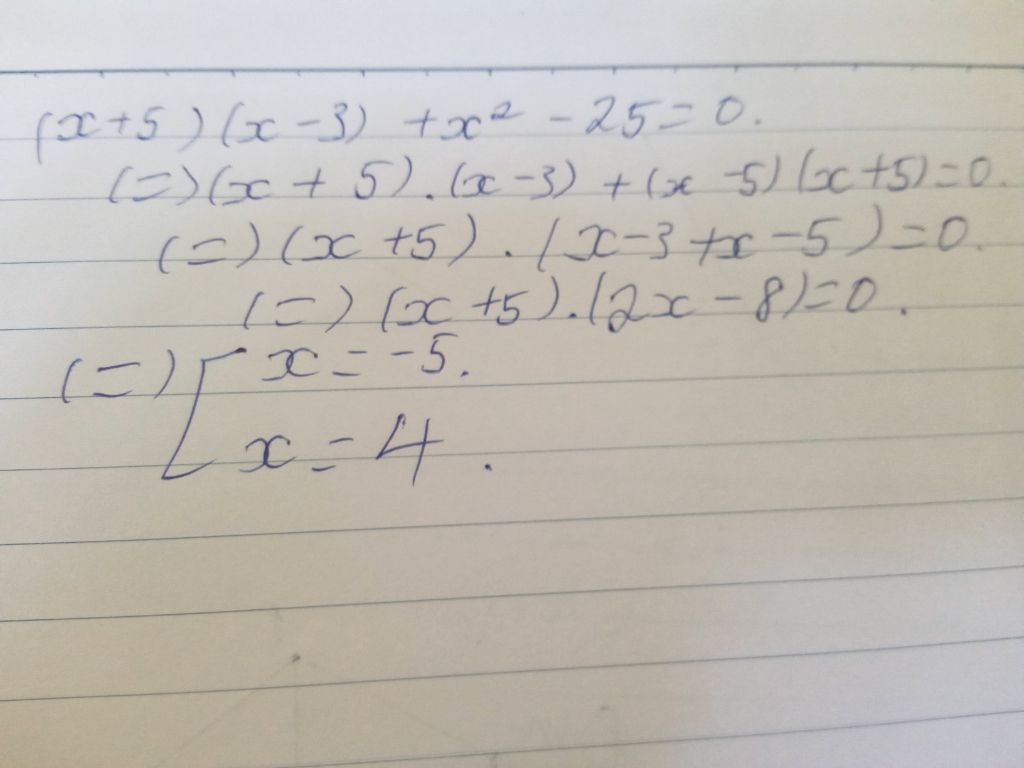 (x+5)(x-3) +x² -25=0.
(=)(x + 5).(x-3) +(x -5)(x+5)=0.
(=)(x +5).(x-3+x-5)=0.
(=)(x+5).(2x-8)=0.
(=)[x=-5.
x=4.